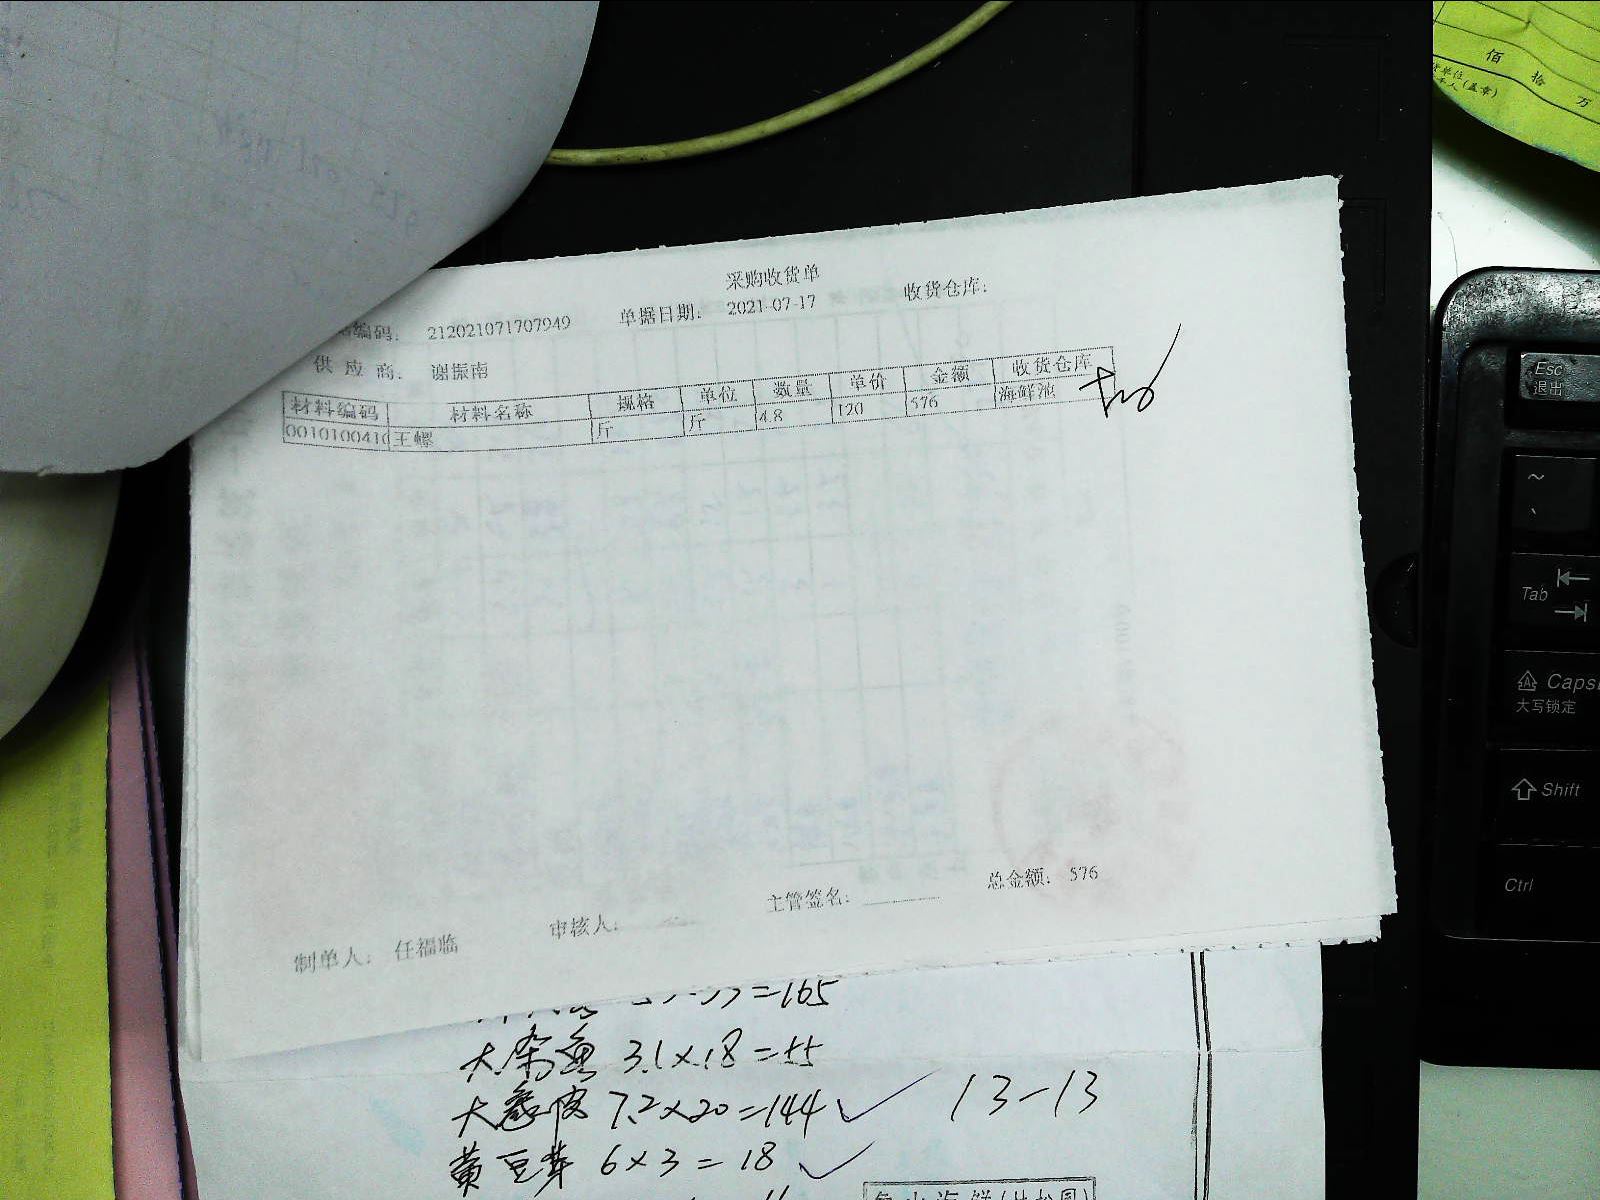 采购收货单
编码： 212021071707949 单据日期： 2021-07-17 收货仓库：
供 应 商． 谢振南
材料编码 材料名称 规格 单位 数量 单价 金额 收货仓库
0010100410 王螺 斤 斤 4.8 120 576 海鲜池
总金额： 576
制单人： 任福临 审核人： 主管签名：
=165
大杂鱼 3.1×18=55
7.2×20=144 13-13
黄豆芽 6×3=18
佰 拾 万
(盖章)
Esc
退出
~
Tab
Caps
大写锁定
Shift
Ctrl